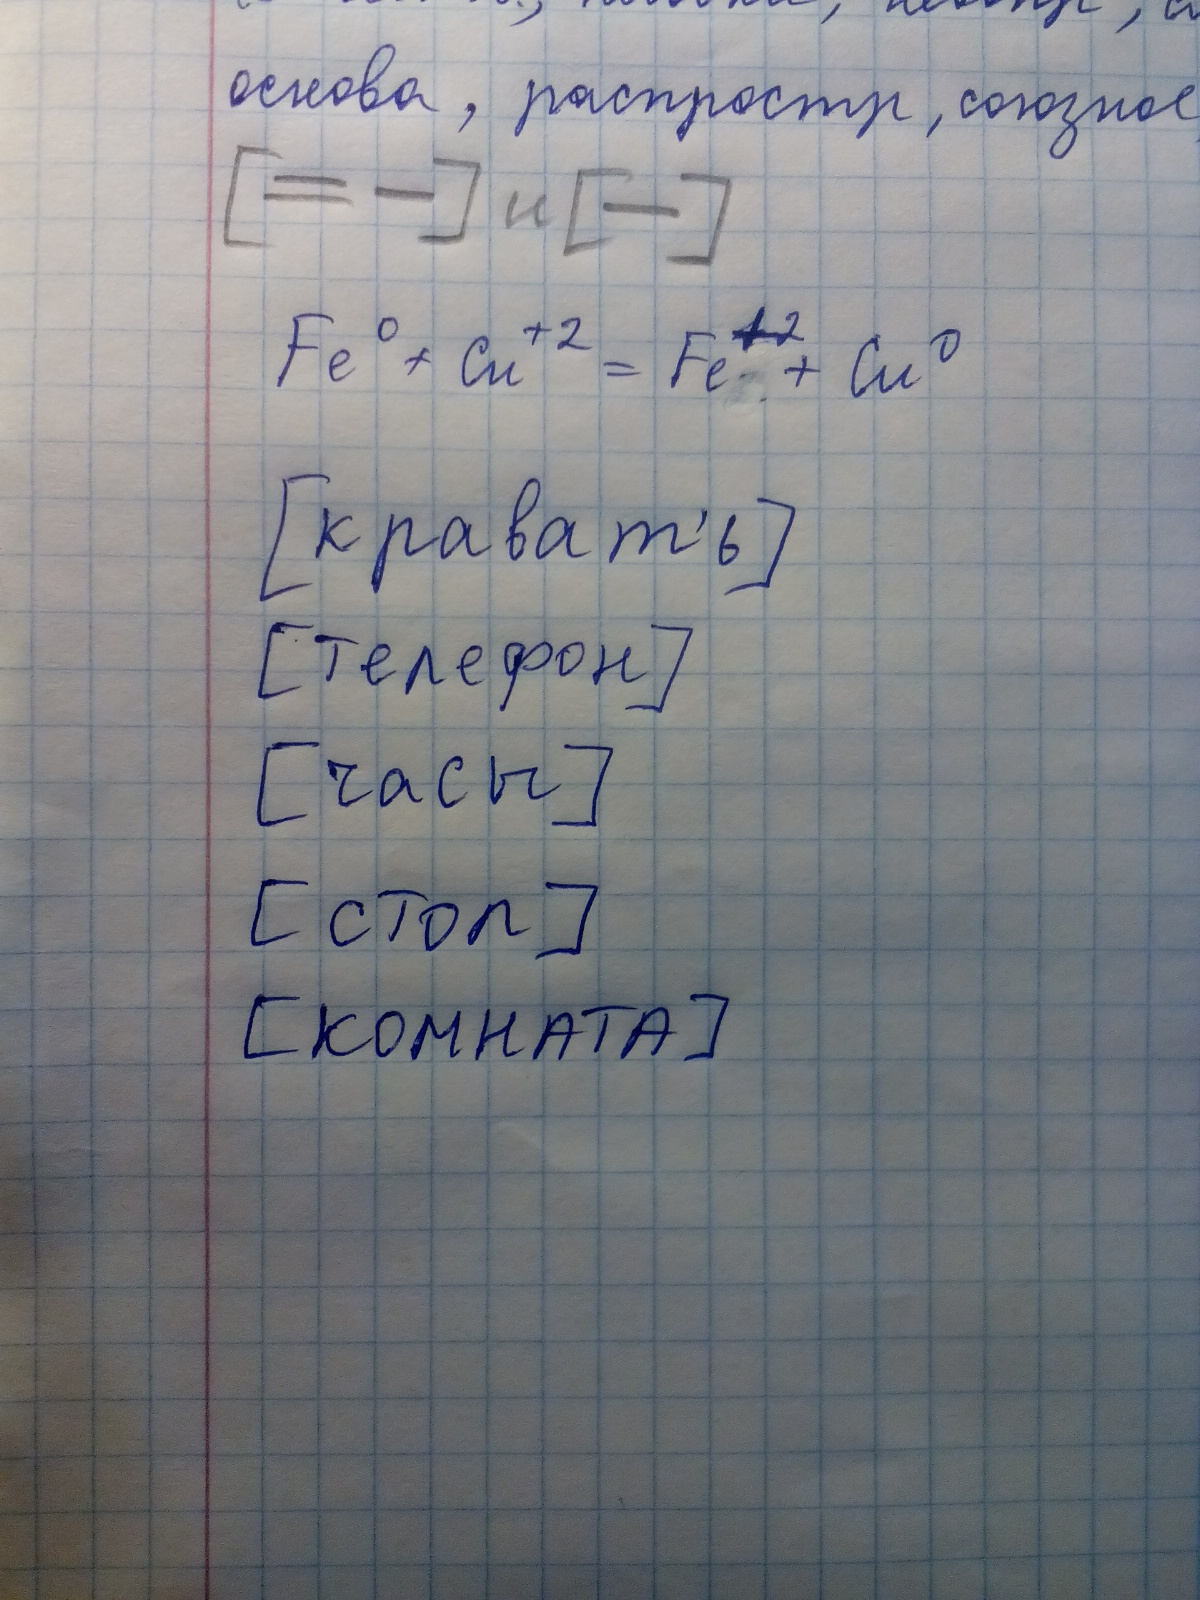 основа, распростр, союзное,
[= –] и [–]
Fe⁰ + Cu⁺² = Fe⁺² + Cu⁰
[кравалт'ь]
[телефон]
[часы]
[стол]
[комната]